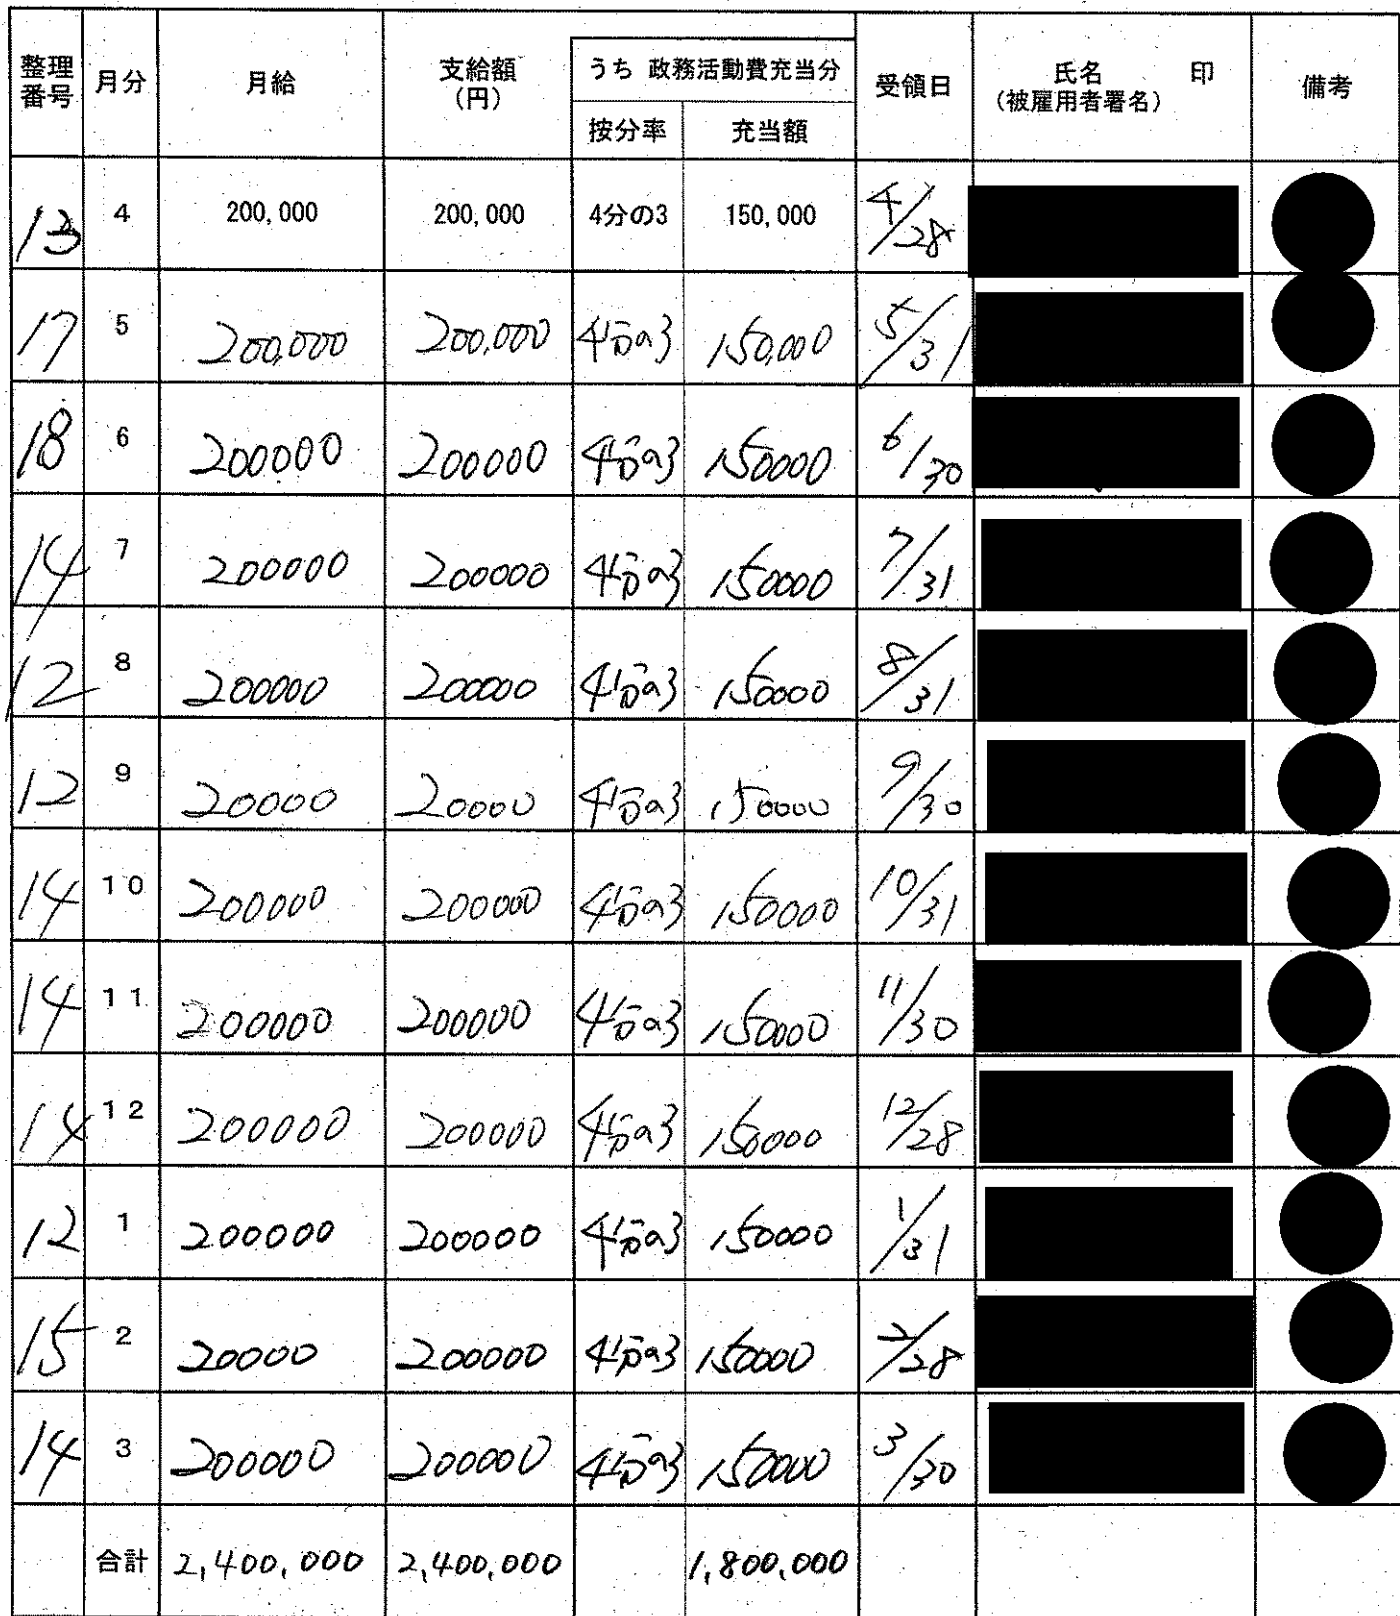 整理番号 月分 月給 支給額(円) うち 政務活動費充当分 按分率 充当額 受領日 氏名 印 (被雇用者署名) 備考
13 4 200,000 200,000 4分の3 150,000 4/28
17 5 200,000 200,000 4分の3 150,000 5/31
18 6 200000 200000 4分の3 150000 6/30
14 7 200000 200000 4分の3 150000 7/31
12 8 200000 200000 4分の3 150000 8/31
12 9 20000 20000 4分の3 150000 9/30
14 10 200000 200000 4分の3 150000 10/31
14 11 200000 200000 4分の3 150000 11/30
14 12 200000 200000 4分の3 150000 12/28
12 1 200000 200000 4分の3 150000 1/31
15 2 20000 200000 4分の3 150000 2/28
14 3 200000 200000 4分の3 150000 3/30
合計 2,400,000 2,400,000 1,800,000